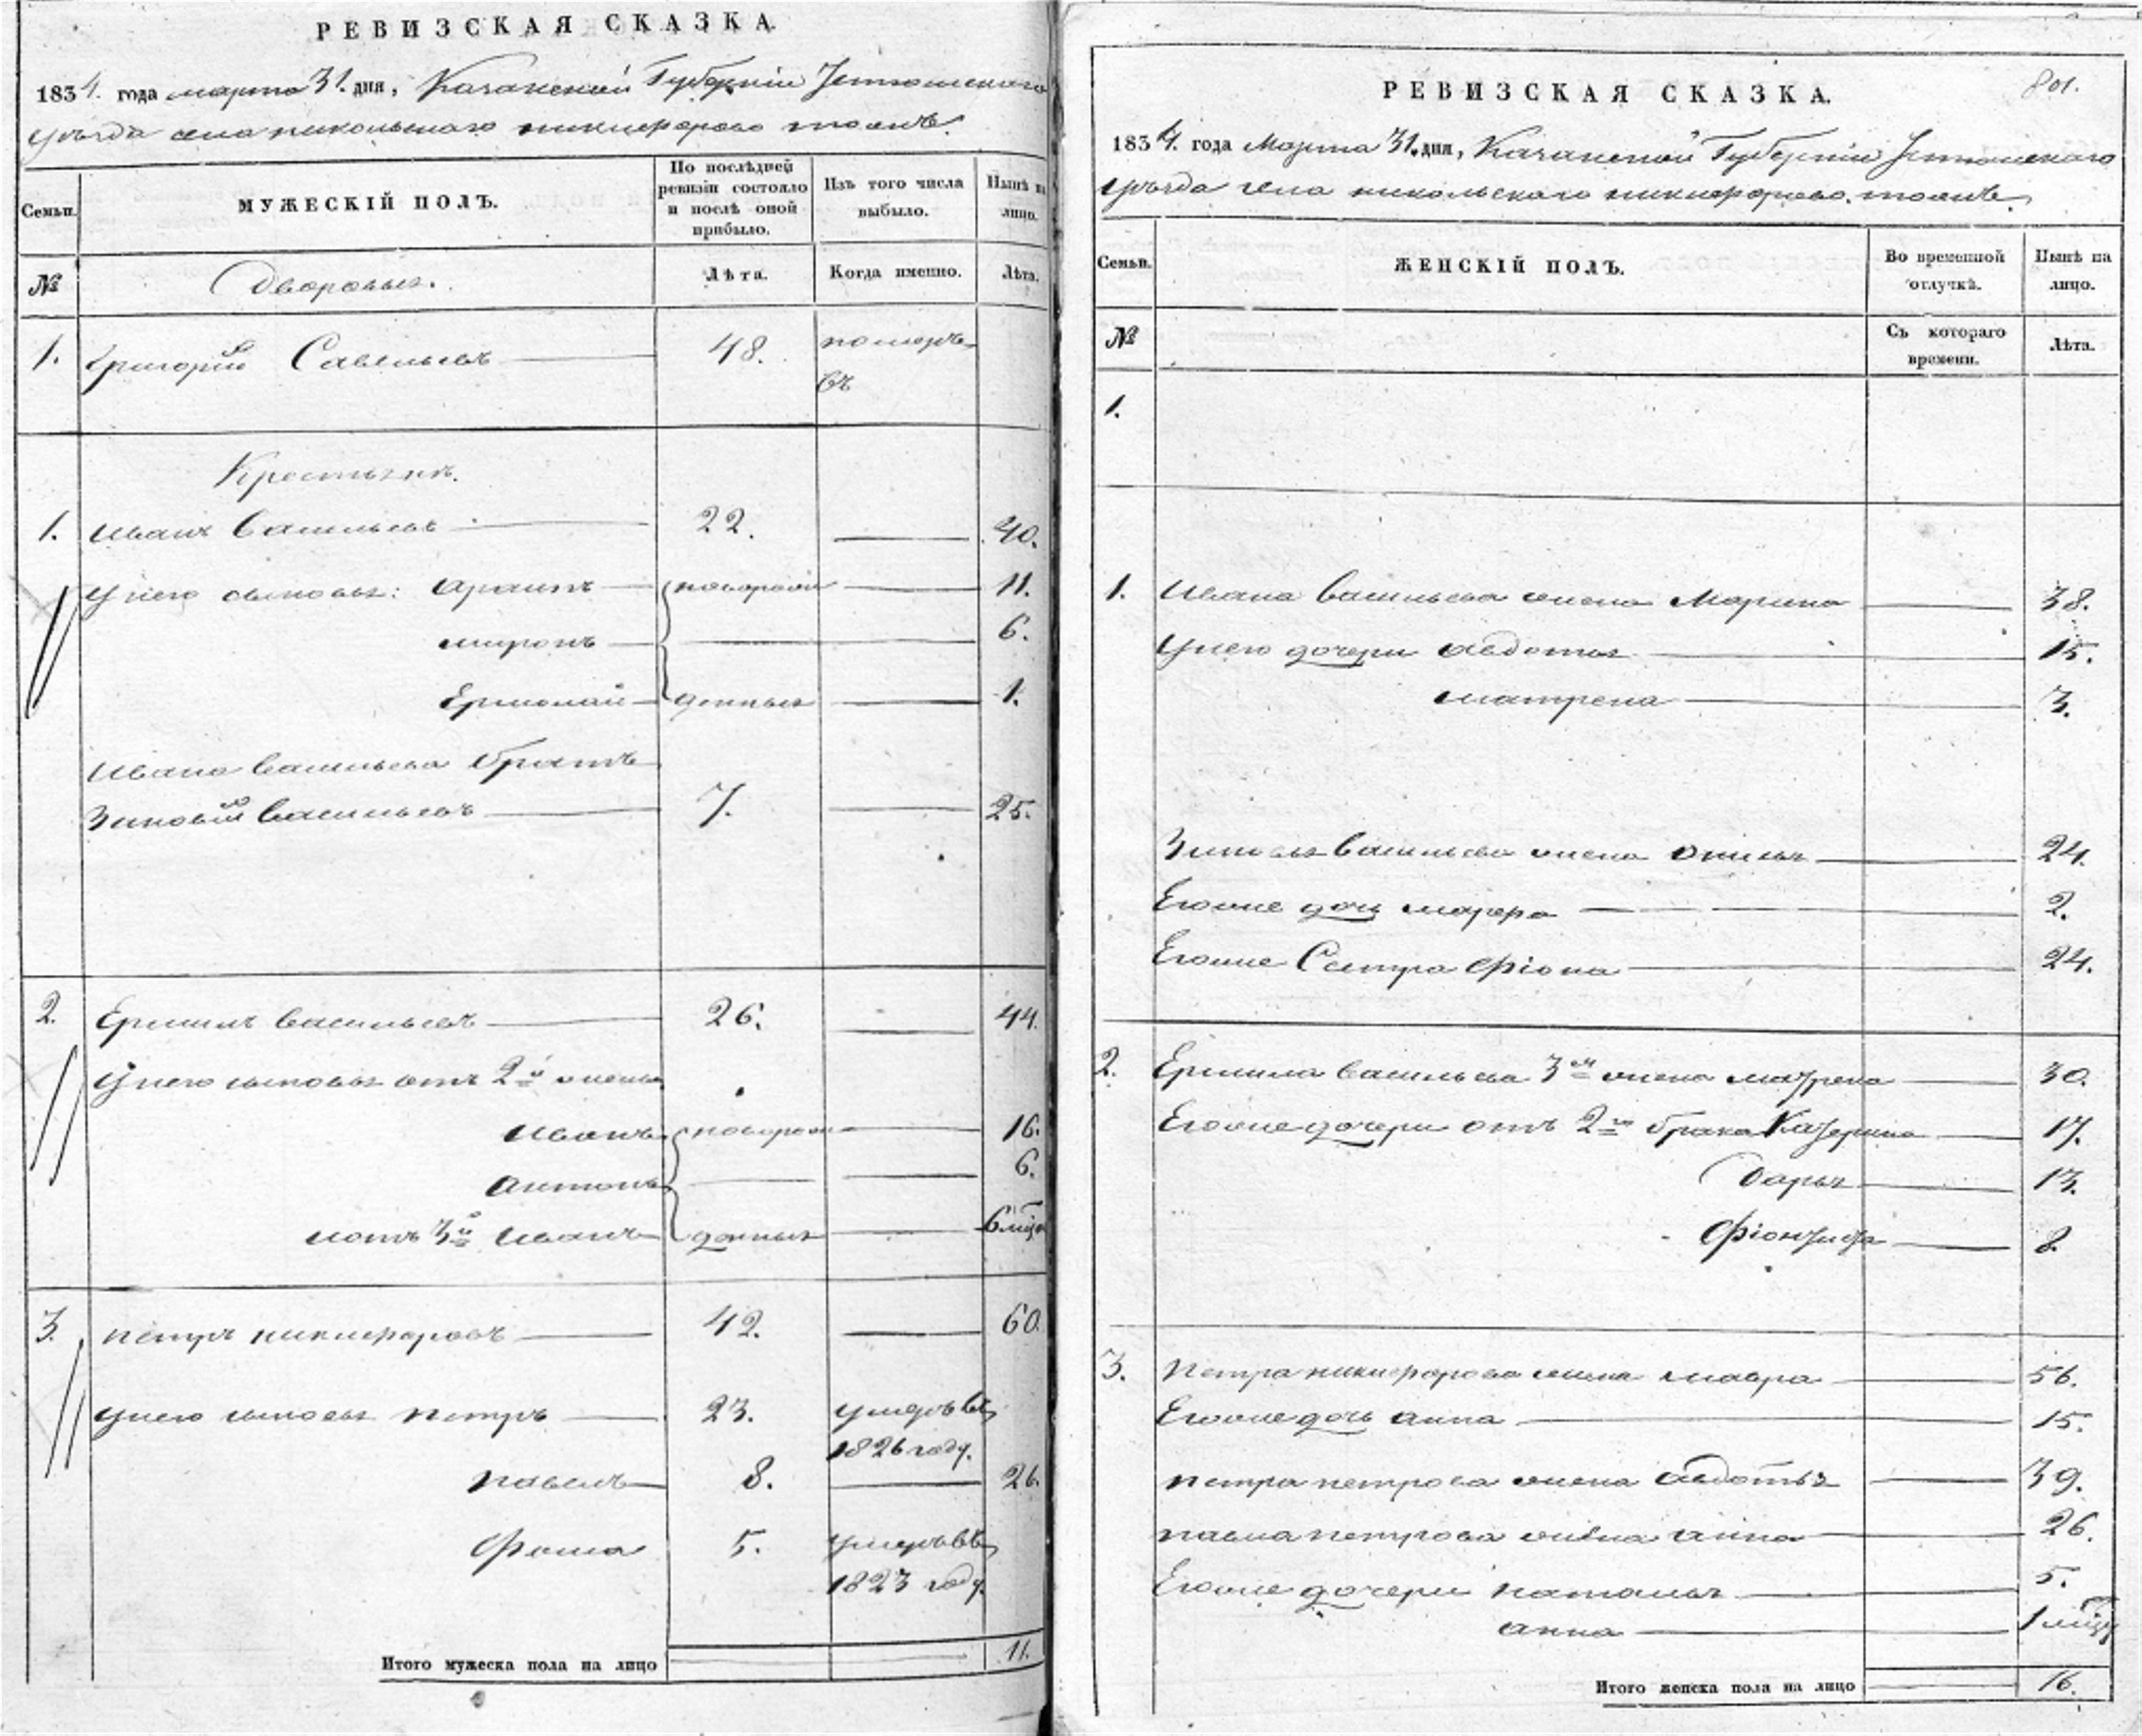 РЕВИЗСКАЯ СКАЗКА
1834. года марта 31. дня, Казанской Губернiи Тетюшскаго
уѣзда села никольскаго никифорово тожъ.
Семьи.
МУЖЕСКIЙ ПОЛЪ.
По послѣдней
ревизiи состояло
и послѣ оной
прибыло.
Изъ того числа
выбыло.
Нынѣ на
лицо.
№
Дворовыя.
Лѣта.
Когда именно.
Лѣта.
1. Григорiй Савельевъ 48. померъ
въ
Крестьянъ.
1. Иванъ Васильевъ 22. 40.
У него сыновья: новорож 11.
миронъ 6.
Ермолай денныя 1.
Ивана Васильева братъ
Зиновiй Васильевъ 7. 25.
2. Ермилъ Васильевъ 26. 44.
У него сыновья отъ 2й жены
Иванъ новорож 16.
Антонъ 6.
и отъ 3й Иванъ денныя 6 мѣся
3. петръ никифоровъ 42. 60.
у него сыновья петръ 23. умеръ въ
1826 году.
павелъ 8. 26.
Фома 5. умеръ въ
1823 году.
Итого мужеска пола на лицо 11.
801.
РЕВИЗСКАЯ СКАЗКА.
1834. года Марта 31. дня, Казанской Губернiи Тетюшскаго
уѣзда села никольскаго никифорово тожъ.
Семьи.
ЖЕНСКIЙ ПОЛЪ.
Во временной
отлучкѣ.
Нынѣ на
лицо.
№
Съ котораго
времени.
Лѣта.
1.
1. Ивана Васильева жена Марина 38.
У него дочери авдотья 15.
матрена 3.
Зиновья Васильева жена 24.
Егоже дочь 2.
Егоже Сестра Фiона 24.
2. Ермила Васильева 3я жена маѳрена 30.
Егоже дочери отъ 2го брака Каѳерина 17.
Дарья 13.
8.
3. Петра никифорова жена мавра 56.
Егоже дочь анна 15.
петра петрова жена авдотья 39.
павла петрова жена анна 26.
Егоже дочери наталья 5.
анна 1 мѣся
Итого женска пола на лицо 16.